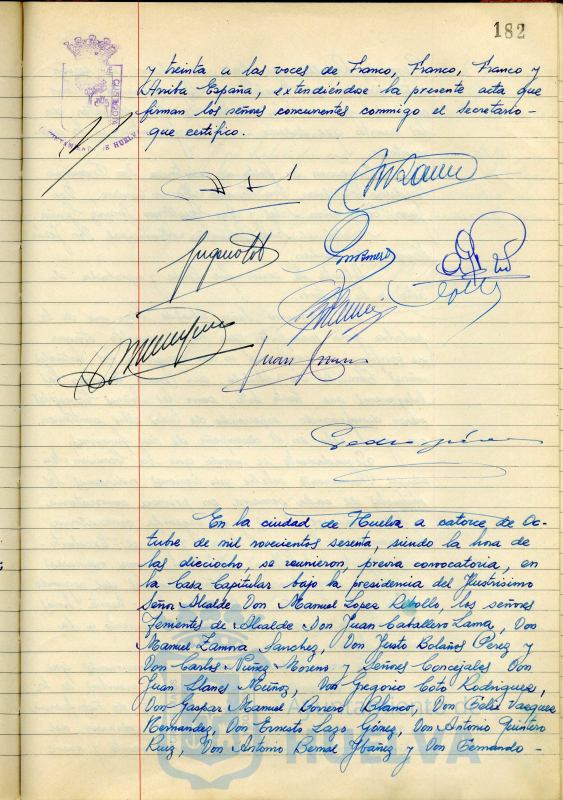 182
y treinta a las voces de Franco, Franco, Franco y
Arriba España, extendiéndose la presente acta que
firman los señores concurrentes conmigo el secretario -
que certifico.
Juan
Pedro
En la ciudad de Huelva a catorce de Oc-
tubre de mil novecientos sesenta, siendo la hora de
las dieciocho, se reunieron, previa convocatoria, en
la Casa Capitular bajo la presidencia del Ilustrisimo
Señor Alcalde Don Manuel Lopez Rebollo, los señores
Tenientes de Alcalde Don Juan Caballero Lama, Don
Manuel Zamora Sanchez, Don Justo Bolaños Perez y
Don Carlos Nuñez Moreno y Señores Concejales Don
Juan Llanes Muñoz, Don Gregorio Coto Rodriguez,
Don Gaspar Manuel Borrero Blanco, Don Felix Vazquez
Hernandez, Don Ernesto Lazo Gómez, Don Antonio Quintero
Ruiz, Don Antonio Bernal Ybañez y Don Fernando -
HUELVA